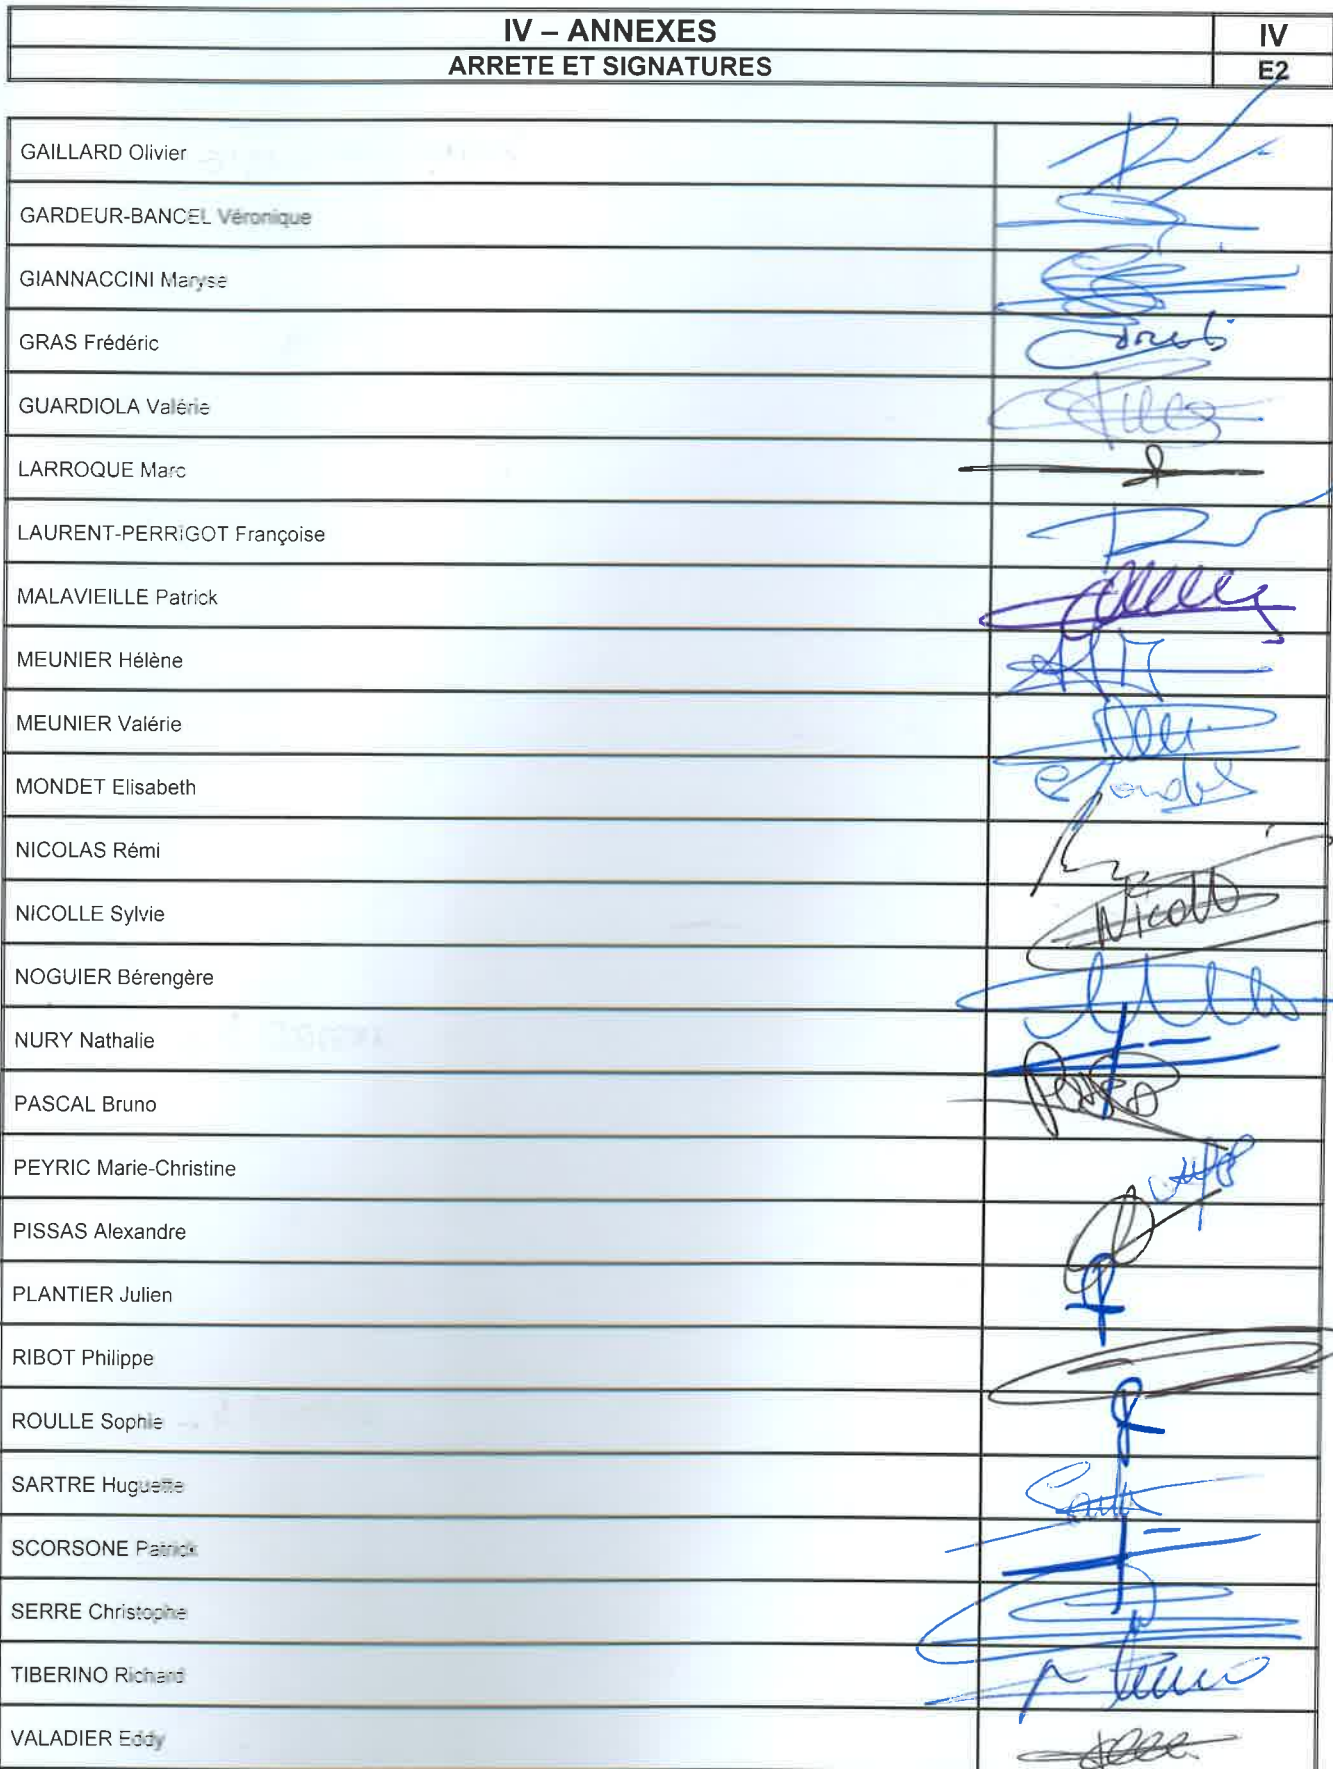 IV – ANNEXES
IV
ARRETE ET SIGNATURES
E2
GAILLARD Olivier
GARDEUR-BANCEL Véronique
GIANNACCINI Maryse
GRAS Frédéric
GUARDIOLA Valérie
LARROQUE Marc
LAURENT-PERRIGOT Françoise
MALAVIEILLE Patrick
MEUNIER Hélène
MEUNIER Valérie
MONDET Elisabeth
NICOLAS Rémi
NICOLLE Sylvie
NOGUIER Bérengère
NURY Nathalie
PASCAL Bruno
PEYRIC Marie-Christine
PISSAS Alexandre
PLANTIER Julien
RIBOT Philippe
ROULLE Sophie
SARTRE Huguette
SCORSONE Patrick
SERRE Christophe
TIBERINO Richard
VALADIER Eddy